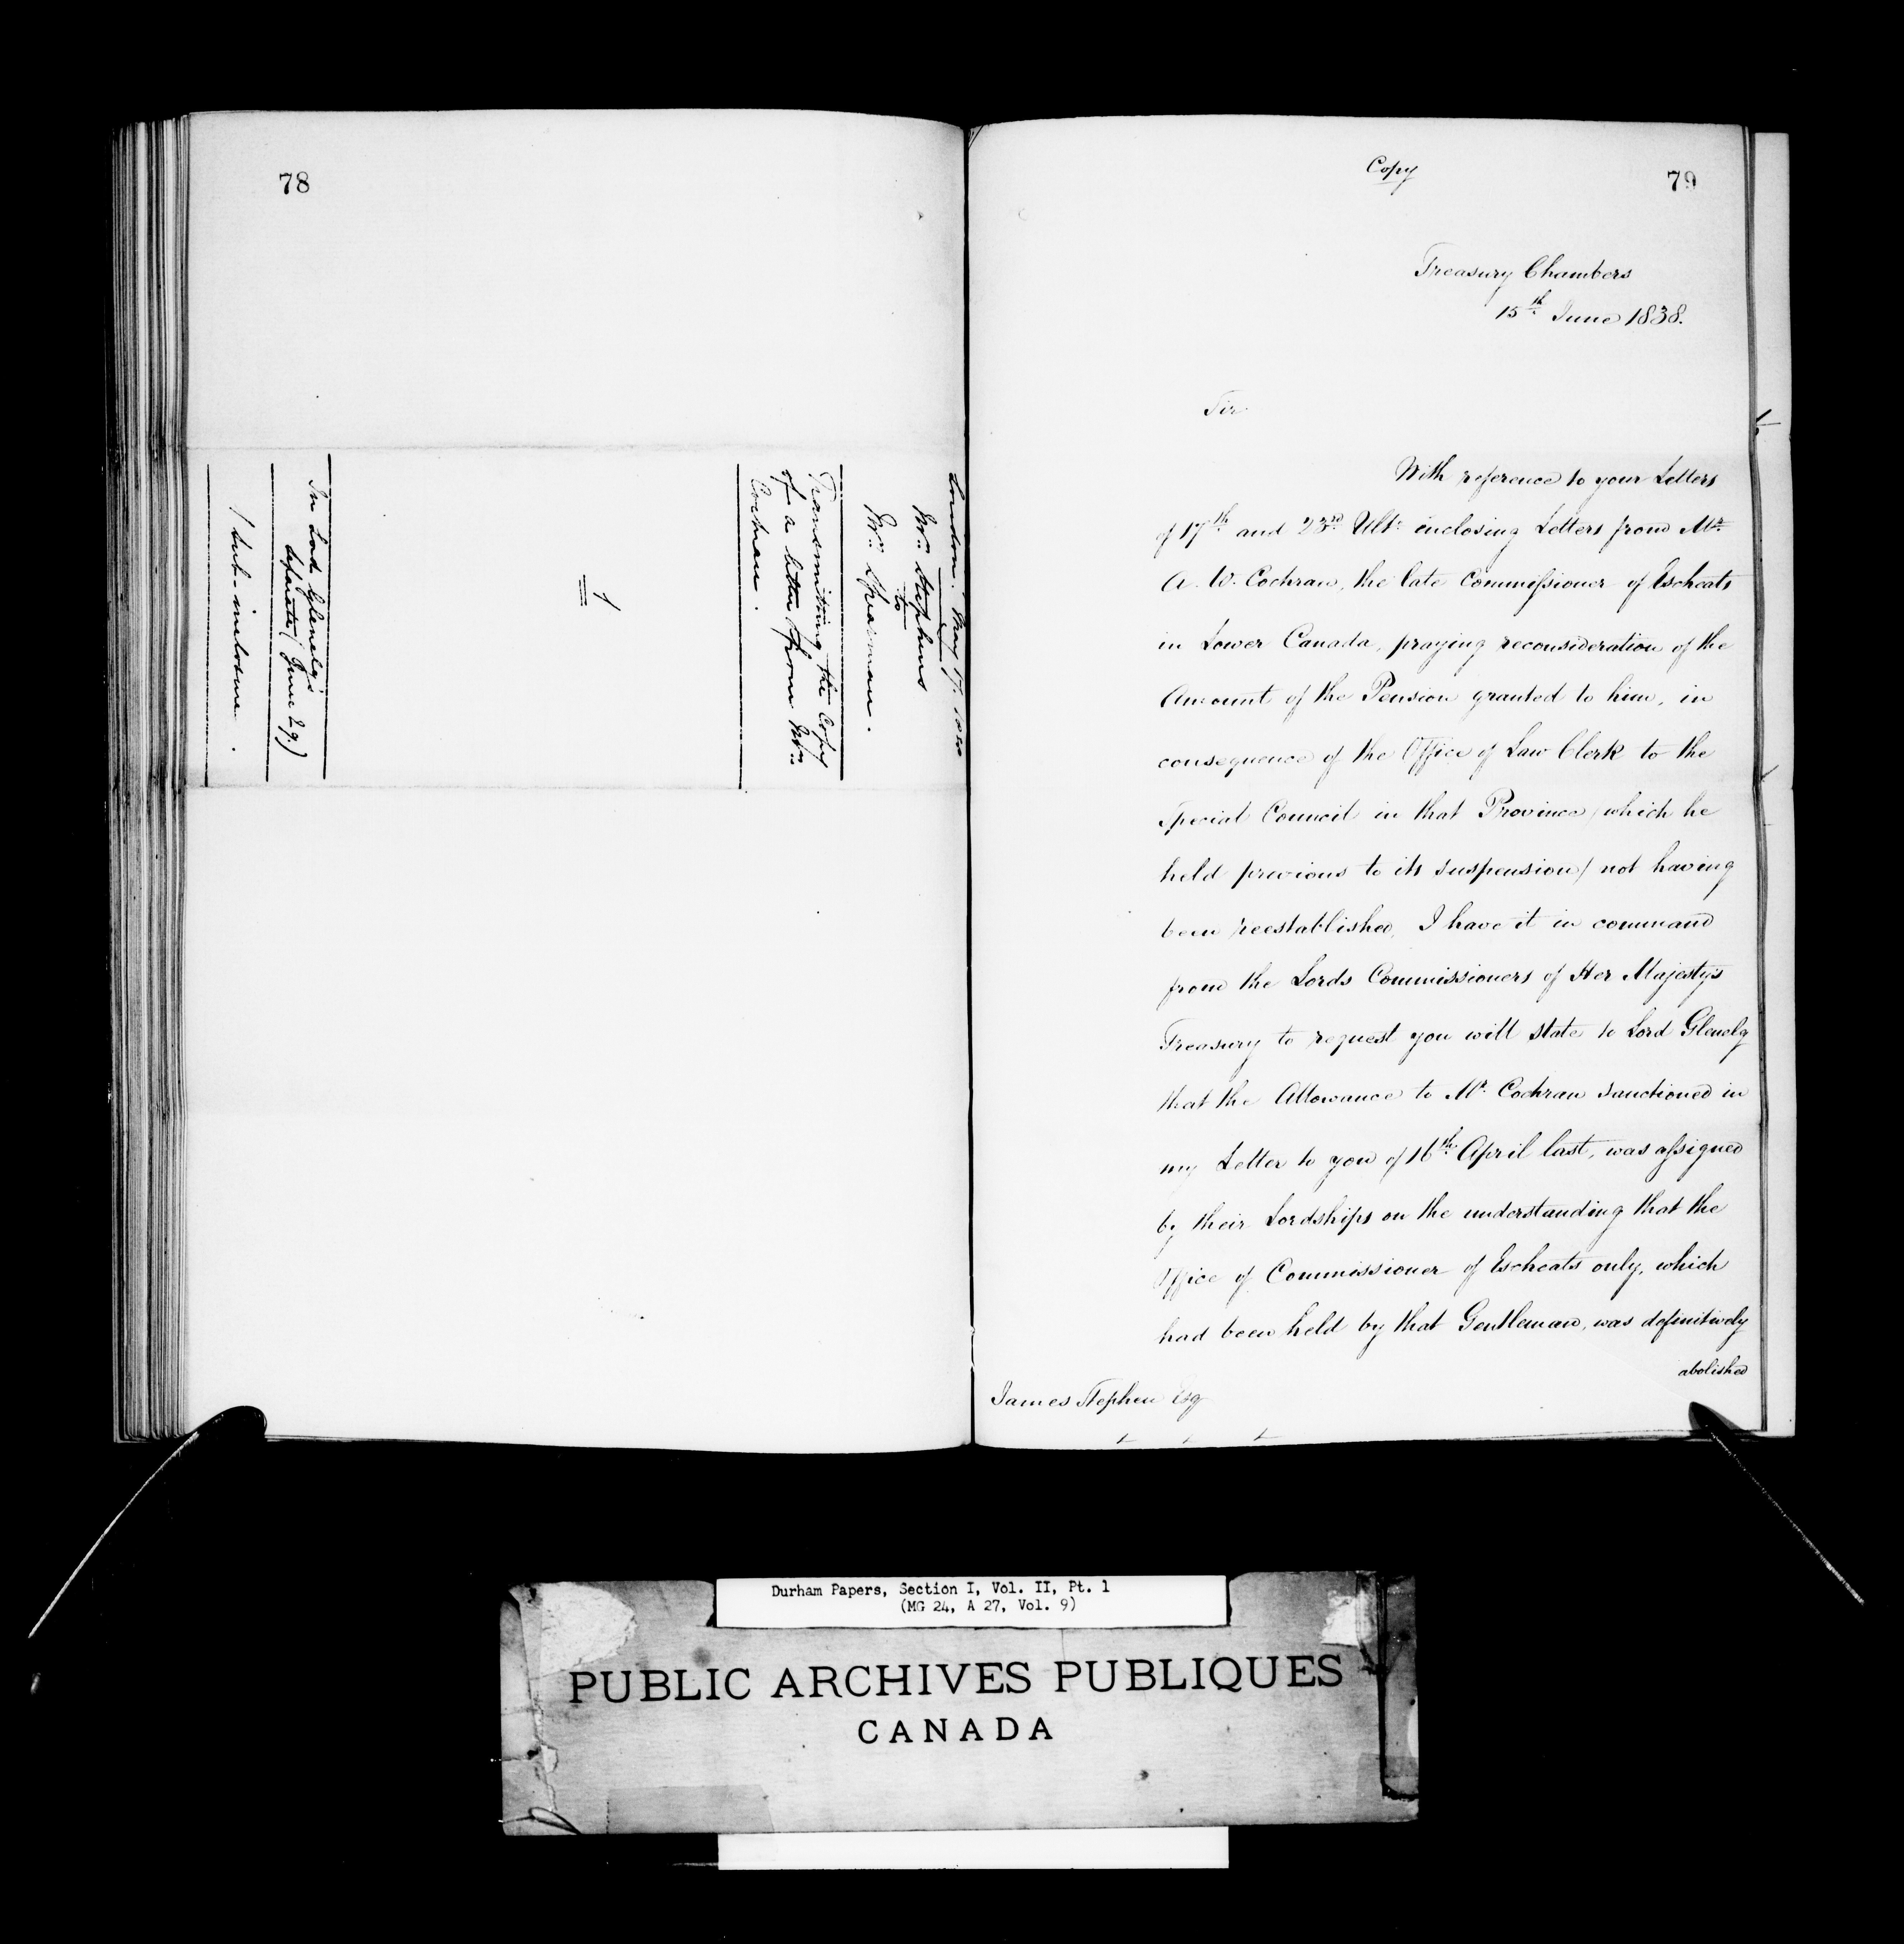 78
London. May 17, 1838
Mr. Stephens
to
Mr. Spearman.
Transmitting the Copy
of a letter from Mr.
Cochran.
1
In Lord Glenelg's
separate (June 29.)
1 sub-inclosure.
Copy
79
Treasury Chambers
15th June 1838.
Sir
With reference to your Letters
of 17th and 23rd Ulto. inclosing Letters from Mr.
A. W. Cochran, the late Commissioner of Escheats
in Lower Canada, praying reconsideration of the
Amount of the Pension granted to him, in
consequence of the Office of Law Clerk to the
Special Council in that Province (which he
held previous to its suspension) not having
been reestablished, I have it in command
from the Lords Commissioners of Her Majesty's
Treasury to request you will state to Lord Glenelg
that the Allowance to Mr. Cochran sanctioned in
my Letter to you of 16th April last, was assigned
by their Lordships on the understanding that the
Office of Commissioner of Escheats only, which
had been held by that Gentleman, was definitively
abolished
James Stephen Esq
Durham Papers, Section I, Vol. II, Pt. 1
(MG 24, A 27, Vol. 9)
PUBLIC ARCHIVES PUBLIQUES
CANADA